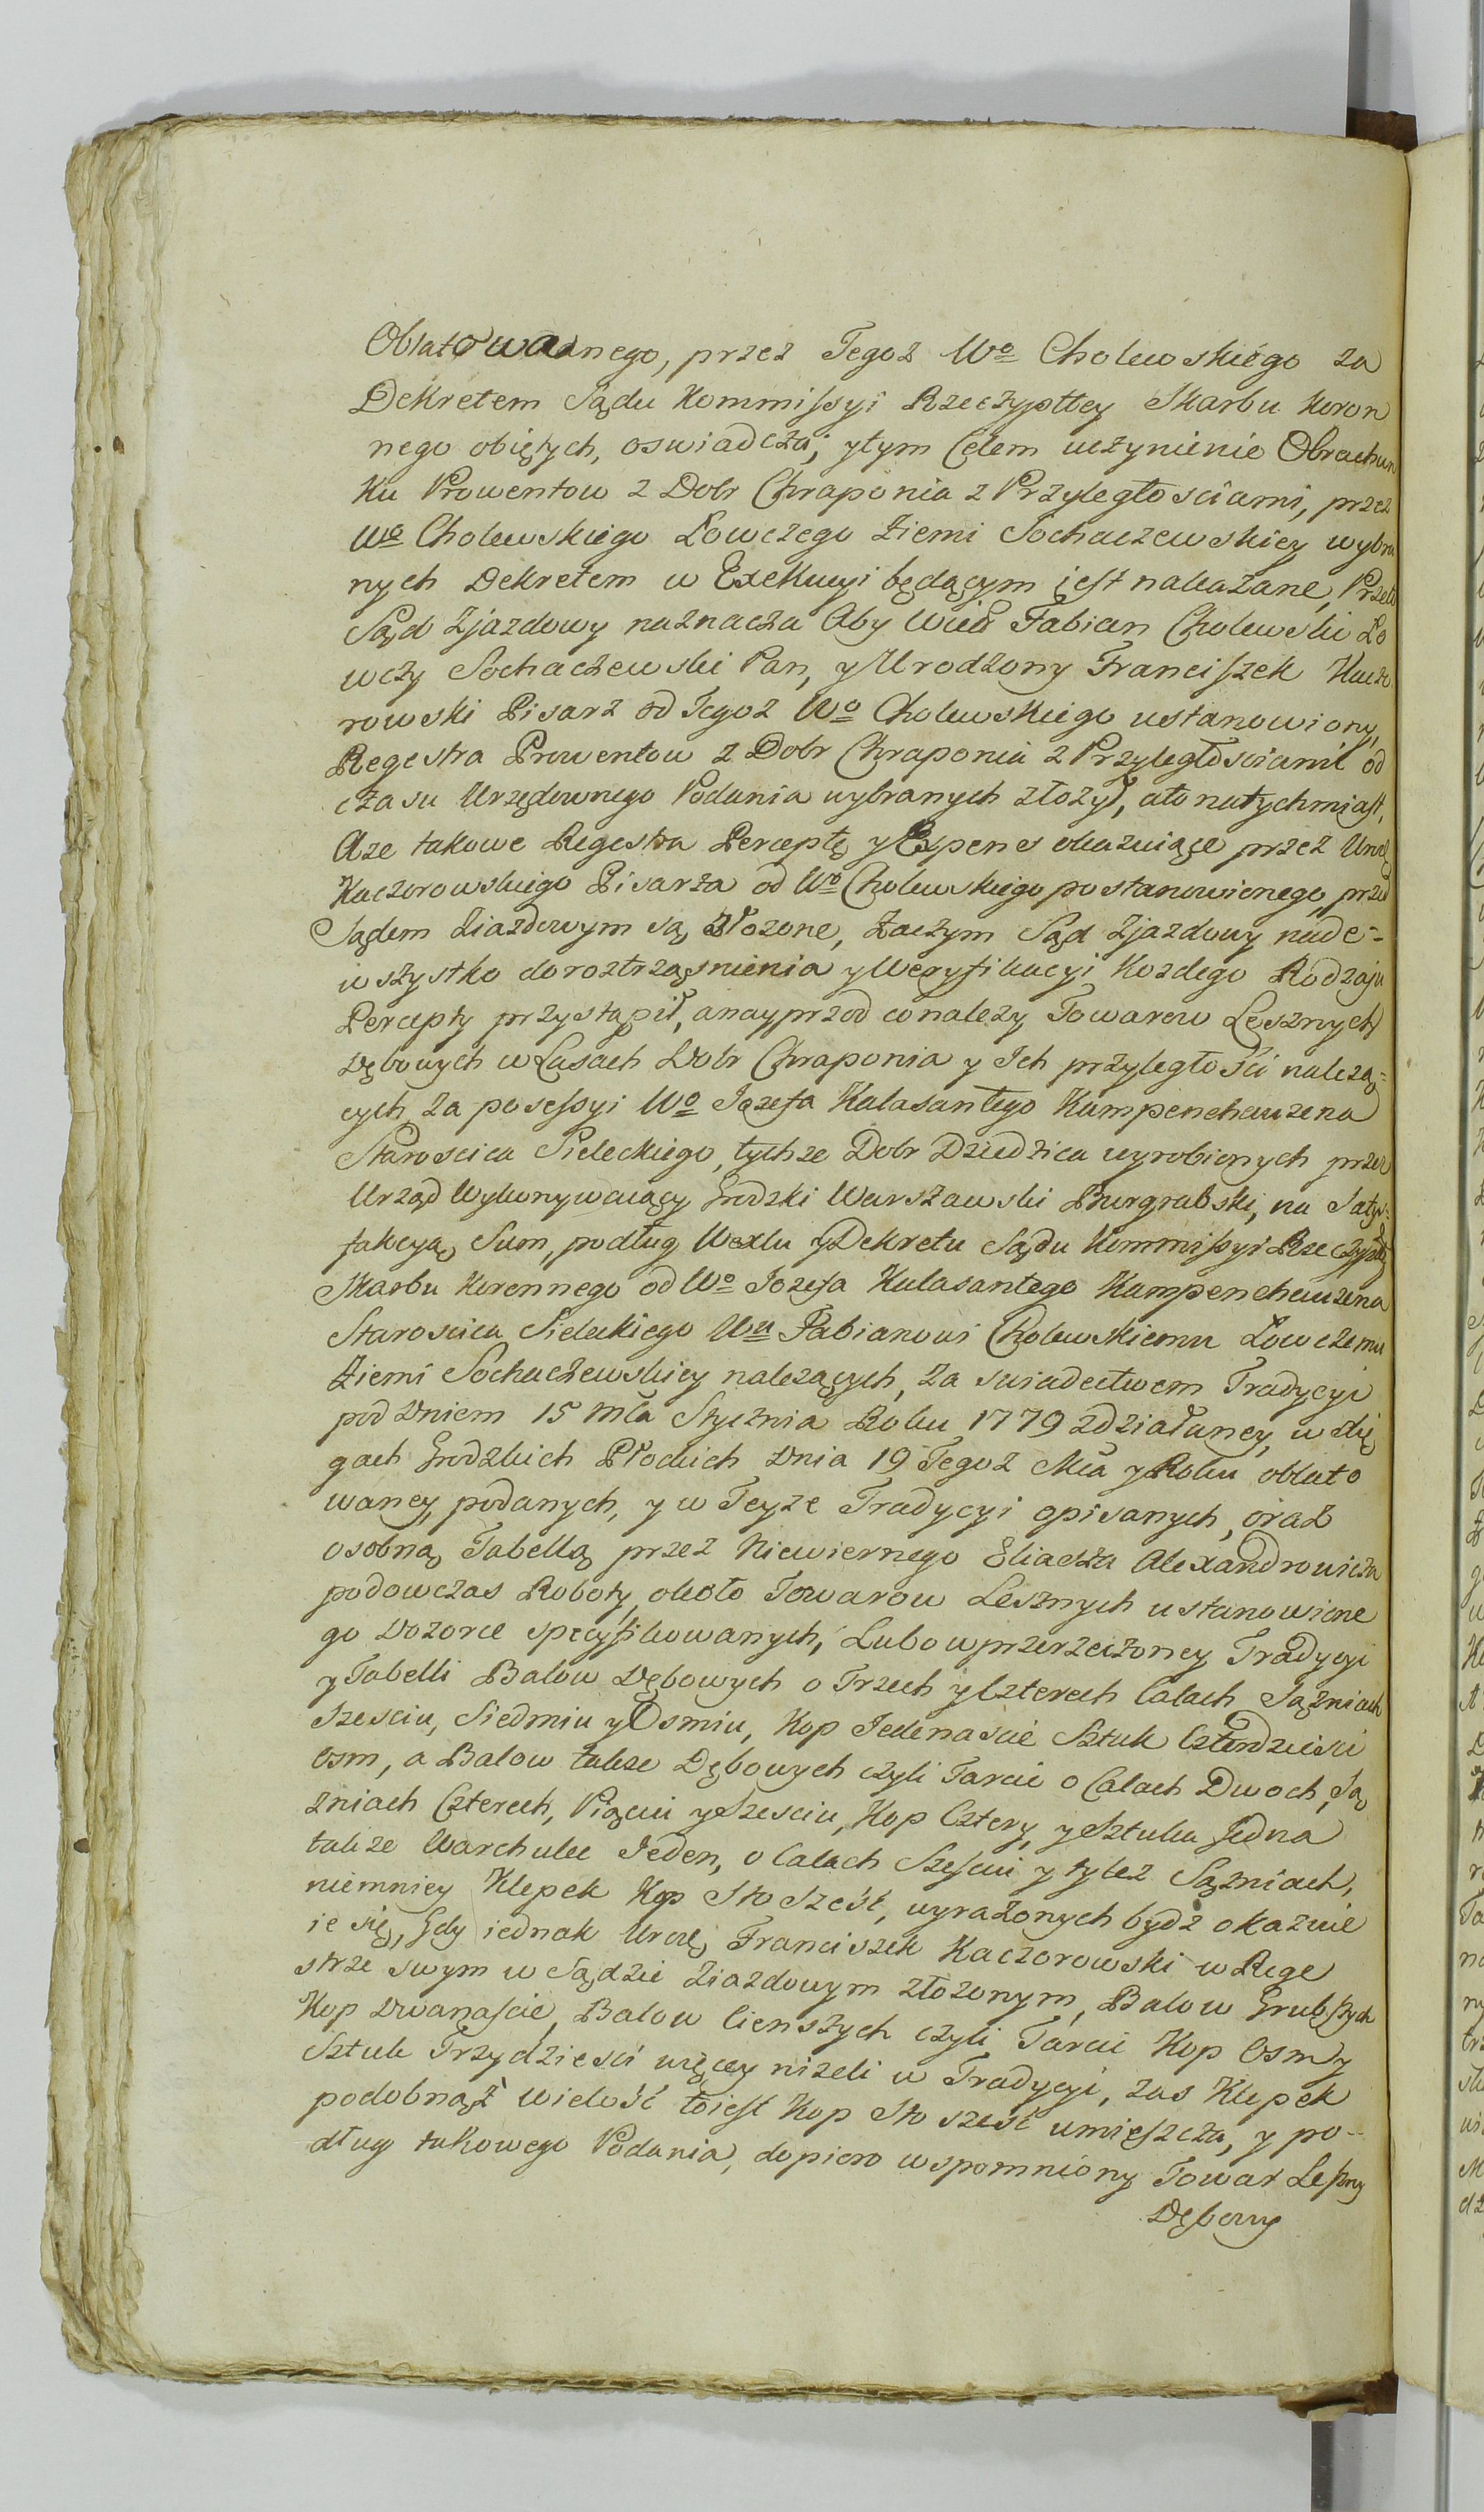 Oblatowanego, przez Tegoz Wo Cholewskiego za
Dekretem Sądu Kommissyi Rzeczypttey Skarbu Koron
nego obiętych, oswiadcza; y tym Celem uczynienie Obrachun
ku Prowentow z Dobr Chraponia z Przyległosciami, przez
Wo Cholewskiego Łowczego Ziemi Sochaczewskiey wybra
nych Dekretem w Exekucyi będącym iest nakazane, Przeto
Sąd Zjazdowy naznacza Aby Wież Fabian Cholewski Ło
wczy Sochaczewski Pan, y Urodzony Franciszek Kaczo
rowski Pisarz od Tegoz Wo Cholewskiego ustanowiony,
Regestra Prowentow z Dobr Chraponia z Przyległosciami od
czasu Urzędownego Podania wybranych złozył, ato natychmiast,
A ze takowe Regestra Perceptę y Expens okazuiące przez Urodz
Kaczorowskiego Pisarza od Wo Cholewskiego postanowionego, przed
Sądem Ziazdowym są złozone, Zaczym Sąd Zjazdowy nade=
wszystko do roztrząsnienia y Weryfikacyi Kozdego Rodzaju
Percepty przystąpił, a nayprzod co nalezy Towarow Lesznych
Dębowych w Lasach Dobr Chraponia y Ich przyległości nalezą=
cych za posessyi Wo Jozefa Kalasantego Kampenchauzena
Starościca Sieleckiego, tychze Dobr Dziedzica wyrobionych przez
Urząd Wykonywaiący Grodzki Warszawski Burgrabski, na Satys=
fakcyą Sum, podług Wexlu y Dekretu Sądu Kommissyi Rzeczyptey
Skarbu Koronnego od Wo Jozefa Kalasantego Kampenchauzena
Staroscica Sieleckiego Wu Fabianowi Cholewskiemu Łowczemu
Ziemi Sochaczewskiey nalezących, za swiadectwem Tradycyi
pod Dniem 15 Mca Stycznia Roku 1779 zdziałaney, w Xię
gach Grodzkich Płockich Dnia 19 Tegoz Mca y Roku oblato
waney, podanych, y w Teyze Tradycyi opisanych, oraz
osobną Tabellą przez Niewiernego Eliasza Alexandrowicza
podowczas Roboty około Towarow Lesznych ustanowione
go Dozorce specyfikowanych, Lubo w przerzeczoney Tradycyi
y Tabelli Balow Dębowych o Trzech y Czterech Calach Sążniach
Szesciu, Siedmiu y Osmiu, Kop Jedenascie Sztuk Czterdziesci
Osm, a Balow takze Dębowych czyli Tarcic o Calach Dwoch, Są
zniach Czterech, Piąciu y Szesciu, Kop Cztery, y Sztuka Jedna
takze Warchulec Jeden, o Calach Szesciu y tylez Sązniach,
niemniey Klepek Kop Sto Sześć, wyrażonych bydz okazuie
ie się, Gdy iednak Urodz Franciszek Kaczorowski w Rege
strze swym w Sądzie Ziazdowym złożonym, Balow Grubszych
Kop Dwanascie, Balow Cienszych czyli Tarcic Kop Osm y
Sztuk Trzydziesci więcey nizeli w Tradycyi, zas Klepek
podobnąż wielość toiest Kop Sto szesć umieszcza, y po-
dług takowego Podania, dopiero wspomniony Towar Leszny
Dębowy